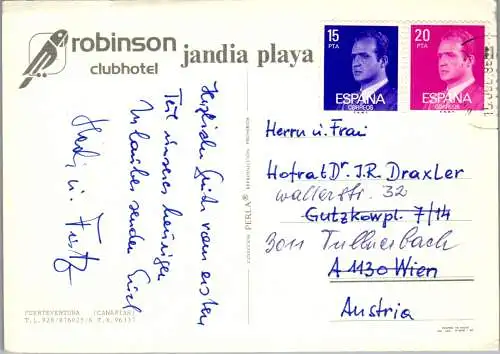 robinson
clubhotel
jandia playa
15
PTA
ESPAÑA
CORREOS
20
PTA
ESPAÑA
CORREOS
Herzliche Grüße vom ersten
Teil unseres heurigen
Urlaubes senden Euch
Heidi u. Fritz
COLECCION PERLA® REPRODUCCION PROHIBIDA
Herrn u. Frau
Hofrat Dr. J.R. Draxler
wallerstr. 32
Gutzkowpl. 7/14
3011 Tullnerbach
A 1130 Wien
Austria
FUERTEVENTURA (CANARIAS)